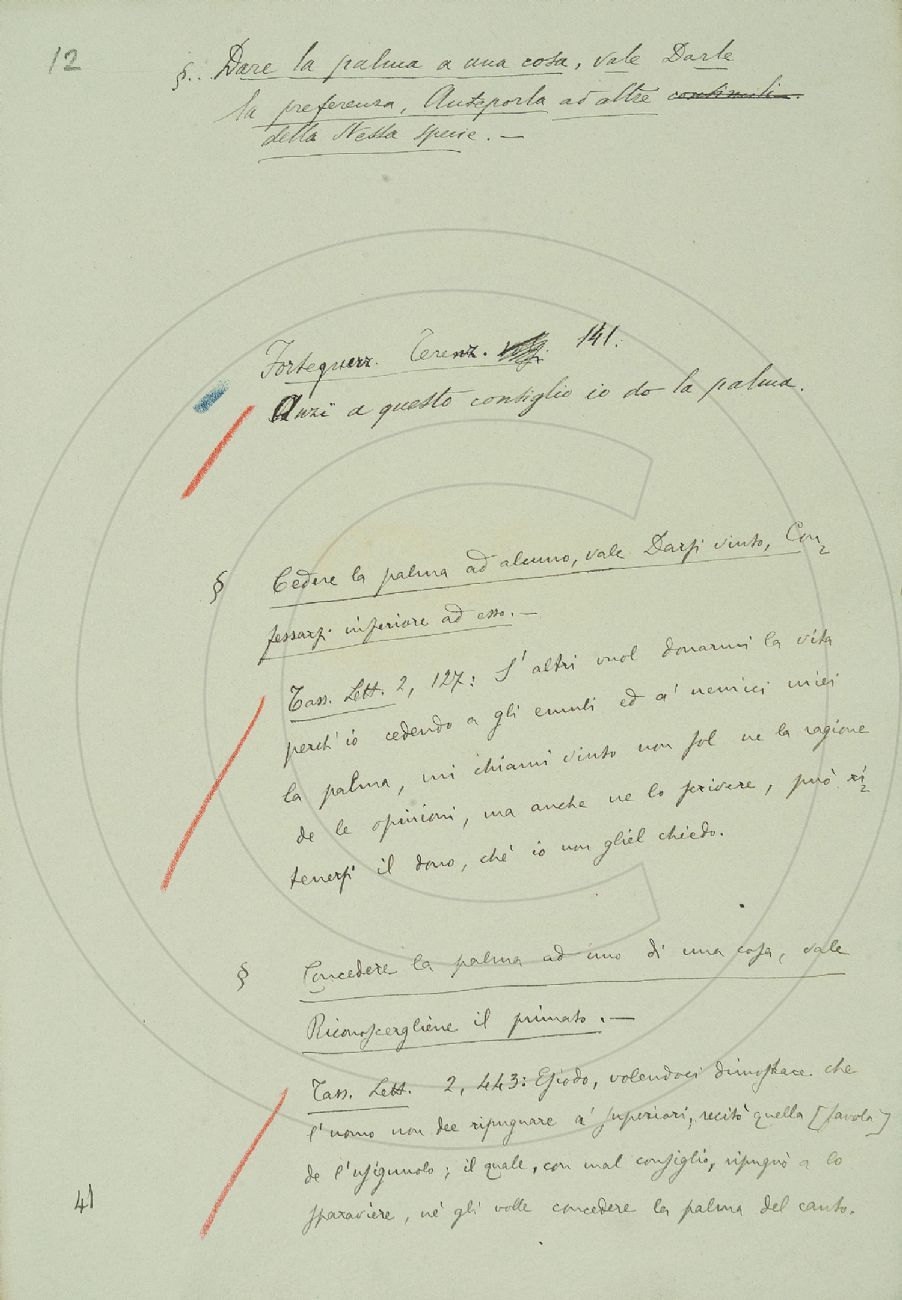 12
§. Dare la palma a una cosa, vale Darle
la preferenza, Anteporla ad altre
della stessa specie. —
Forteguerr. Terenz. 141.
Anzi a questo consiglio io do la palma.
§ Cedere la palma ad alcuno, vale Darsi vinto, Con-
fessarsi inferiore ad esso. —
Tass. Lett. 2, 127: S' altri vuol donarmi la vita
perch' io cedendo a gli emuli ed a' nemici miei
la palma, mi chiami vinto non sol ne la ragione
de le opinioni, ma anche ne lo scrivere, può ri-
tenersi il dono, ché io non gliel chiedo.
§ Concedere la palma ad uno di una cosa, vale
Riconoscergliene il primato. —
Tass. Lett. 2, 443: Esiodo, volendoci dimostrare che
l'uomo non dee ripugnare a' superiori, recitò quella [favola]
de l'usignuolo; il quale, con mal consiglio, ripugnò a lo
sparaviere, né gli volle concedere la palma del canto.
41